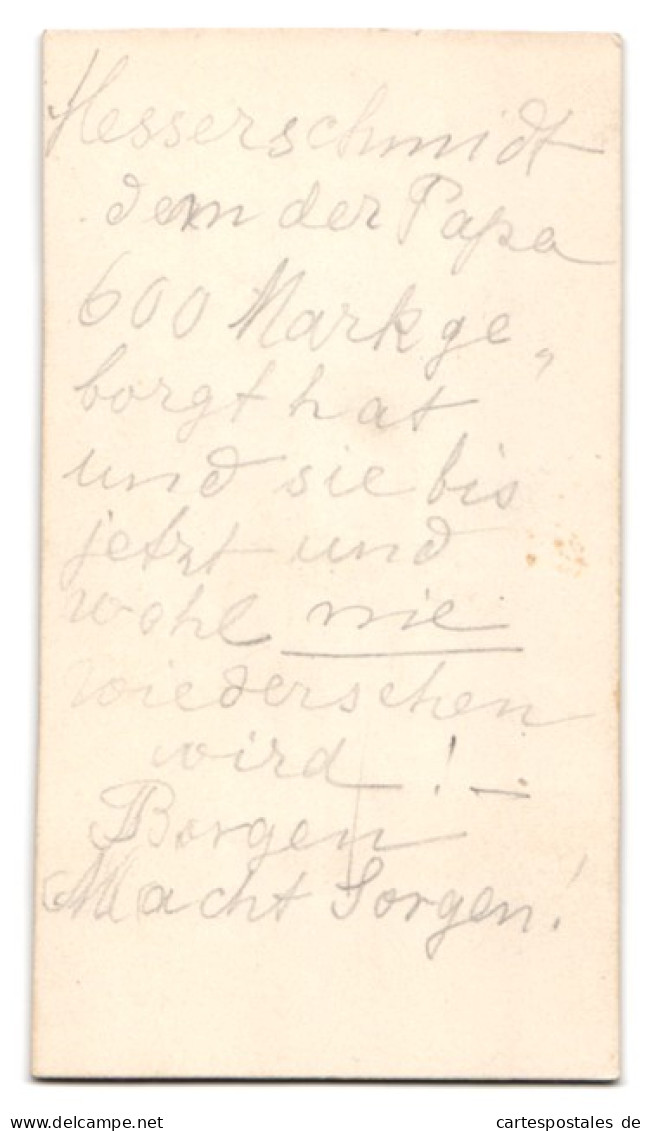 Messerschmidt
dem der Papa
600 Mark ge„
borgt hat
und sie bis
jetzt und
wohl nie
wiedersehen
wird! –
Borgen
Macht Sorgen!
www.delcampe.net
cartespostales de